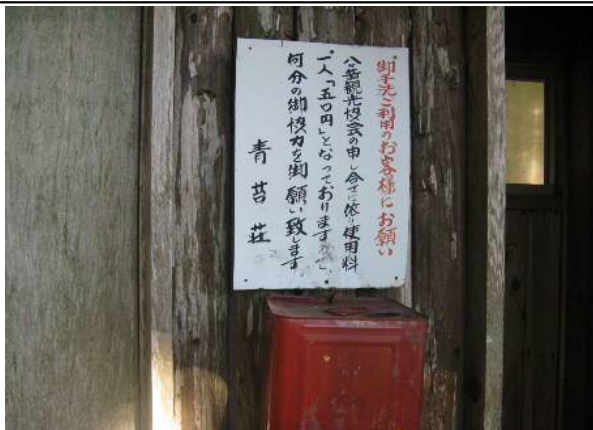 御手洗ご利用のお客様にお願い
八ヶ岳観光協会の申し合せに依り使用料
一人「五〇円」となっております
何分の御協力を御願い致します
青苔荘